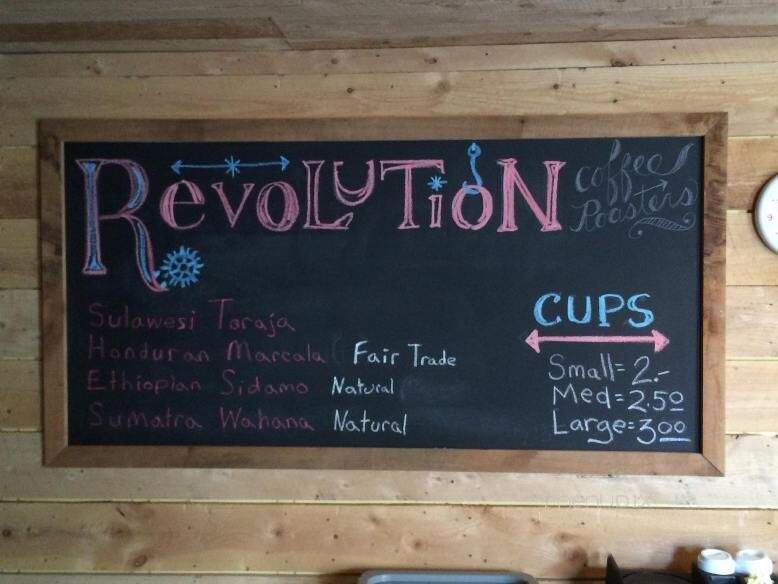 Revolution
Coffee
Roasters
Sulawesi Toraja
Honduran Marcala Fair Trade
Ethiopian Sidamo Natural
Sumatra Wahana Natural
CUPS
Small = 2.-
Med = 2.50
Large = 3.00